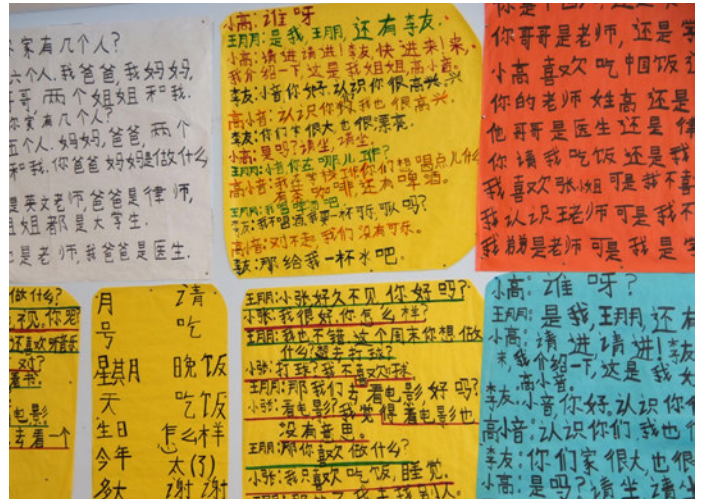 家有几个人?
六个人.我爸爸,我妈妈,
哥,两个姐姐和我.
你家有几个人?
五个人.妈妈,爸爸,两个
和我.你爸爸妈妈是做什么
是英文老师,爸爸是律师,
姐姐都是大学生.
是老师,我爸爸是医生.
小高:谁呀
王朋:是我,王朋,还有李友.
小高:请进请进!李友快进来!来,
我介绍一下,这是我姐姐,高小音.
李友:小音你好.认识你很高兴.
高小音:认识你们我也很高兴.
李友:你们家很大也很漂亮.
小高:是吗?请坐,请坐.
王朋:小音你在哪儿工作?
高小音:我在学校工作.你们想喝点儿什么
咖啡,还有啤酒.
李友:我不喝酒.我要一杯可乐,可以吗?
高小音:对不起我们没有可乐.
李友:那给我一杯水吧.
你哥哥是老师,还是学
小高喜欢吃中国饭还
你的老师姓高还是
他哥哥是医生还是律
你请我吃饭还是我
我喜欢张小姐可是我不喜
我认识王老师可是我不
我弟弟是老师可是我是学
做什么?
还喜欢听音乐
对?
看书.
电影
去看一个
月 请
号 吃
星期 晚饭
天 吃饭
生日 怎么样
今年 太(了)
多大 谢谢
王朋:小张好久不见,你好吗?
小张:我很好.你怎么样?
王朋:我也不错.这个周末你想做
什么?想去打球?
小张:打球?我不喜欢打球.
王朋:那我们去看电影好吗?
小张:看电影?我觉得看电影也
没有意思.
王朋:那你喜欢做什么?
小张:我只喜欢吃饭,睡觉.
小高:谁呀?
王朋:是我,王朋,还有
小高:请进请进!李友
来,我介绍一下,这是我
高小音.
李友:小音你好.认识你
高小音:认识你们我也
李友:你们家很大,也很
小高:是吗?请坐请坐